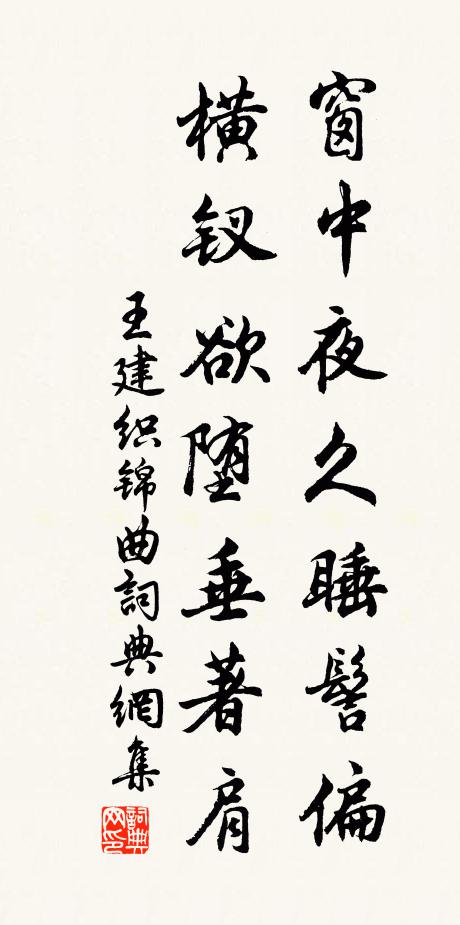 窗中夜久睡髻偏
横钗欲堕垂著肩
王建织锦曲詞典網集
詞典网印